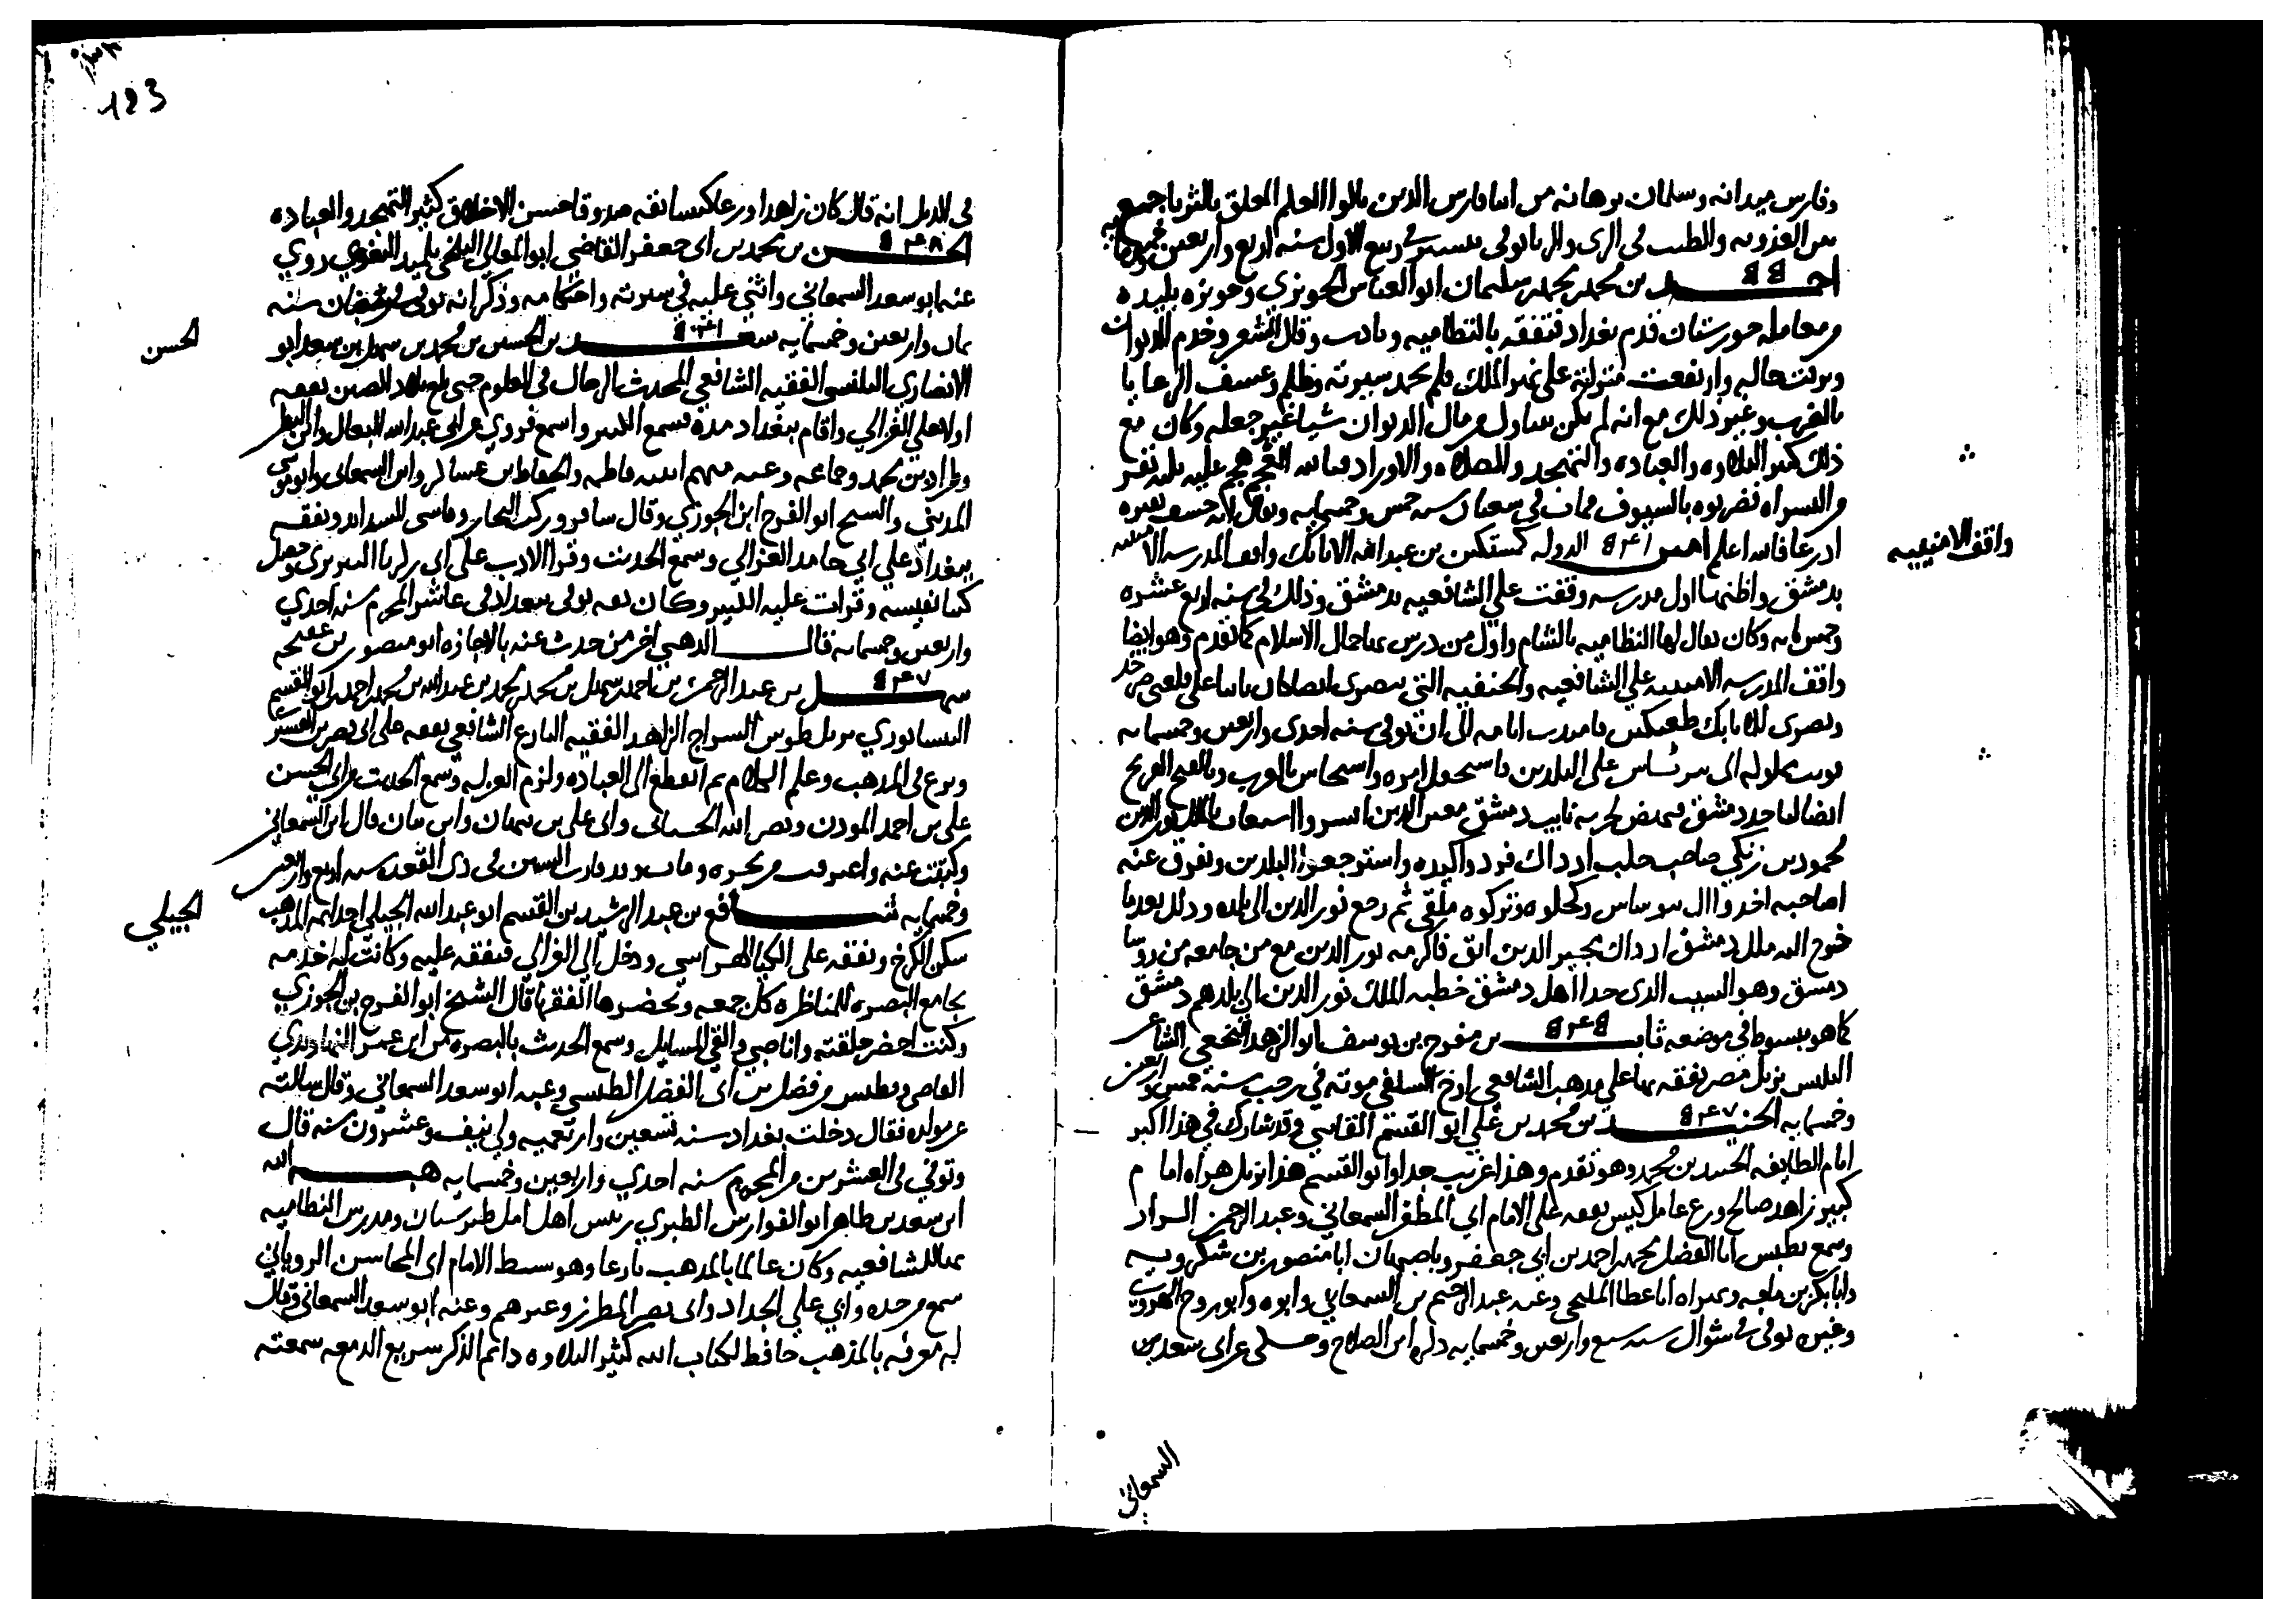 وفارس ميدانه وسلمان برهانه من ابنا فارس الدين بالوا العلم المعلق بالثريا جمع
بين العذوبه والطب في الرى والريا توفي بتستر في ربيع الاول سنه اربع واربعين وخمسمايه
احمد بن محمد بن محمد بن سليمان ابو العباس الحويزي وحويزه بليده
ومعامله خورستان قدم بغداد فتفقه بالنظاميه وتادب وقال الشعر وخدم الديوان
وترقت حاله وارتفعت منزلته على نهر الملك فلم تحمد سيرته وظلم وعسف الرعايا
بالضرب وغير ذلك مع انه لم يكن يتناول من مال الديوان شيا غير جعله وكان مع
ذلك كثير التلاوه والعباده والتهجد والصلاه والاوراد هجم عليه ثلثه نفر
من الشراه فضربوه بالسيوف فمات في شعبان سنه خمس وخمسمايه ويقال انه خسف بقبره
ادرعا فالله اعلم امين الدوله كمستكين بن عبدالله الاتابكي واقف المدرسه الامينيه
بدمشق واظنها اول مدرسه وقفت على الشافعيه بدمشق وذلك في سنه اربع عشره
وخمس مايه وكان يقال لها النظاميه بالشام واول من درس بها جمال الاسلام كما تقدم وهو ايضا
واقف المدرسه الامينيه على الشافعيه والحنفيه التي ببصرى ايضا كان نايبا على قلعتي صرخد
وبصرى للاتابك طغتكين فامتدت ايامه الى ان توفي سنه احدى واربعين وخمسمايه
ايضا ليأخذ دمشق فنهض لحربه نايب دمشق معين الدين انسر واستعان بالملك نور الدين
محمود بن زنكي صاحب حلب اذ ذاك فرد واكيده واسترجعوا البلدين وتفرق عنه
اصاحبه اخذوا وكحلوه وتركوه ملقى ثم رجع نور الدين الى بلده وذلك بعد ما
خرج اليه ملك دمشق اذ ذاك مجير الدين ابق فاكرمه نور الدين مع من جا معه من روسا
دمشق وهو السبب الذي حدا اهل دمشق خطبه الملك نور الدين الى بلدهم دمشق
كما هو مبسوط في موضعه ثابت بن مفرج بن يوسف ابو الزهد الخثعمي الشاعر
البلنسي نزيل مصر تفقه بها على مذهب الشافعي ارخ السلفي موته في رجب سنه خمس واربعين
وخمسمايه الجنيد بن محمد بن علي ابو القسم القايني وقد شارك في هذا اكبر
امام الطايفه الجنيد بن محمد وهو تقدم وهذا غريب جدا وابو القسم هذا نزيل هراه امام
كبير زاهد صالح ورع عامل كيس تفقه على الامام ابي المظفر السمعاني وعبد الرحمن السراد
وسمع بطبس ابا الفضل محمد بن احمد بن ابي جعفر وباصبهان ابا منصور بن شكرويه
وابا بكر بن ماجه وبهراه ابا عطا المليحي وعنه عبد الرحيم بن السمعاني وابوه وابو روح الهروي
وغيره توفي في شوال سنه سبع واربعين وخمسمايه ذكره ابن الصلاح وحكى عن ابي سعد بن
السمعاني
واقف الامينيه
183
في الذيل انه قال كان زاهدا ورعا كيسا ثقه صدوقا حسن الاخلاق كثير التهجد والعباده
الحسن بن محمد بن ابي جعفر القاضي ابو المعالي البلخي تلميذ البغوي روي
عنه ابو سعد السمعاني واثنى عليه في سيرته واحكامه وذكر انه توفي في رمضان سنه
ثمان واربعين وخمسمايه سعد بن الحسين بن محمد بن سهل بن سعد ابو
الانصاري البلنسي الفقيه الشافعي المحدث الرحال في العلوم حتى بلغ بلاد الصين تفقه
اولا على الغزالي واقام ببغداد مده فسمع الكثير واسمع فروي عن ابي عبد الله النعال وابن البطر
وطراد بن محمد وجماعه وعنه منهم ابنته فاطمه والحفاظ ابن عساكر وابن السمعاني وابو موسى
المديني والشيخ ابو الفرج ابن الجوزي وقال سافر وركب البحار وقاسى الشدايد وتفقه
ببغداد على ابي حامد الغزالي وسمع الحديث وقرا الادب على ابي زكريا التبريزي وحصل
كتبا نفيسه وقرات عليه الكثير وكان ثقه توفي ببغداد في عاشر المحرم سنه احدي
واربعين وخمسمايه قال الذهبي اخر من حدث عنه بالاجازه ابو منصور بن عفيجه
سهل بن عبد الرحمن بن احمد بن سهل بن محمد بن محمد بن عبد الله بن محمد بن احمد ابو القسم
النيسابوري نزيل طوس السراج الزاهد الفقيه البارع الشافعي تفقه على ابي نصر بن القشيري
وبرع في المذهب وعلم الكلام ثم انقطع الى العباده ولزم العزله وسمع الحديث من ابي الحسن
علي بن احمد المودن ونصر الله الخشنامي وابي علي بن نبهان وابن بيان قال ابن السمعاني
وكتبت عنه واغترفت من بحره ومات وقد قارب الستين في ذي القعده سنه اربع واربعين
وخمسمايه شافع بن عبد الرشيد بن القسم ابو عبد الله الجيلي احد ايمه المذهب
سكن الكرخ وتفقه على الكيا الهراسي ودخل الى الغزالي فتفقه عليه وكانت له حلقه
بجامع البصره للمناظره كل جمعه وتحضرها الفقها قال الشيخ ابو الفرج بن الجوزي
وكنت احضر حلقته وانا صبي والقي المسايل وسمع الحديث بالبصره من ابي عمر النهاوندي
القاضي وبطبس من فضل بن ابي الفضل الطبسي وعنه ابو سعد السمعاني وقال سالته
عن مولده فقال دخلت بغداد سنه تسعين واربعميه ولي نيف وعشرون سنه قال
وتوفي في العشرين من المحرم سنه احدي واربعين وخمسمايه هبه الله
ابن سعد بن طاهر ابو الفوارس الطبري رييس اهل امل طبرستان ومدرس النظاميه
بها للشافعيه وكان عالما بالمذهب بارعا وهو سبط الامام ابي المحاسن الروياني
سمع من جده وابي علي الحداد وابي نصر المطرز وغيرهم وعنه ابو سعد السمعاني وقال
له معرفه بالمذهب حافظ لكتاب الله كثير التلاوه دايم الذكر سريع الدمعه سمعته
الحسن
الجيلي